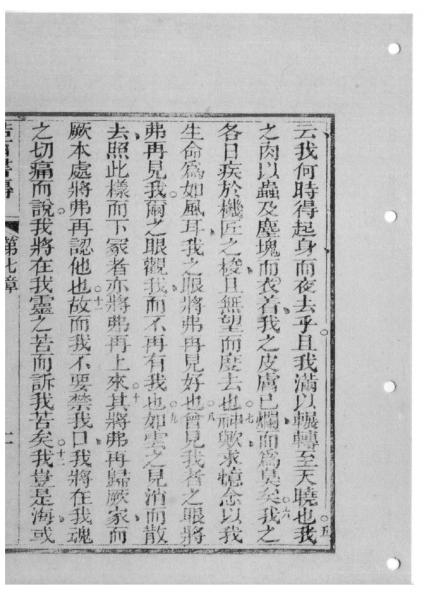 云我何時得起身而夜去乎且我滿以輾轉至天曉也五我
之肉以蟲及塵塊而衣着我之皮膚已爛而爲臭矣六我之
各日疾於機匠之梭且無望而度去也七神歟求憶念以我
生命爲如風耳我之眼將弗再見好也八曾見我者之眼將
弗再見我爾之眼觀我而不再有我也九如雲之見消而散
去照此樣而下冢者亦將弗再上來十其將弗再歸厥家而
厥本處將弗再認他也十一故而我不要禁我口我將在我魂
之切痛而說我將在我靈之苦而訴我苦矣十二我豈是海或
第七章